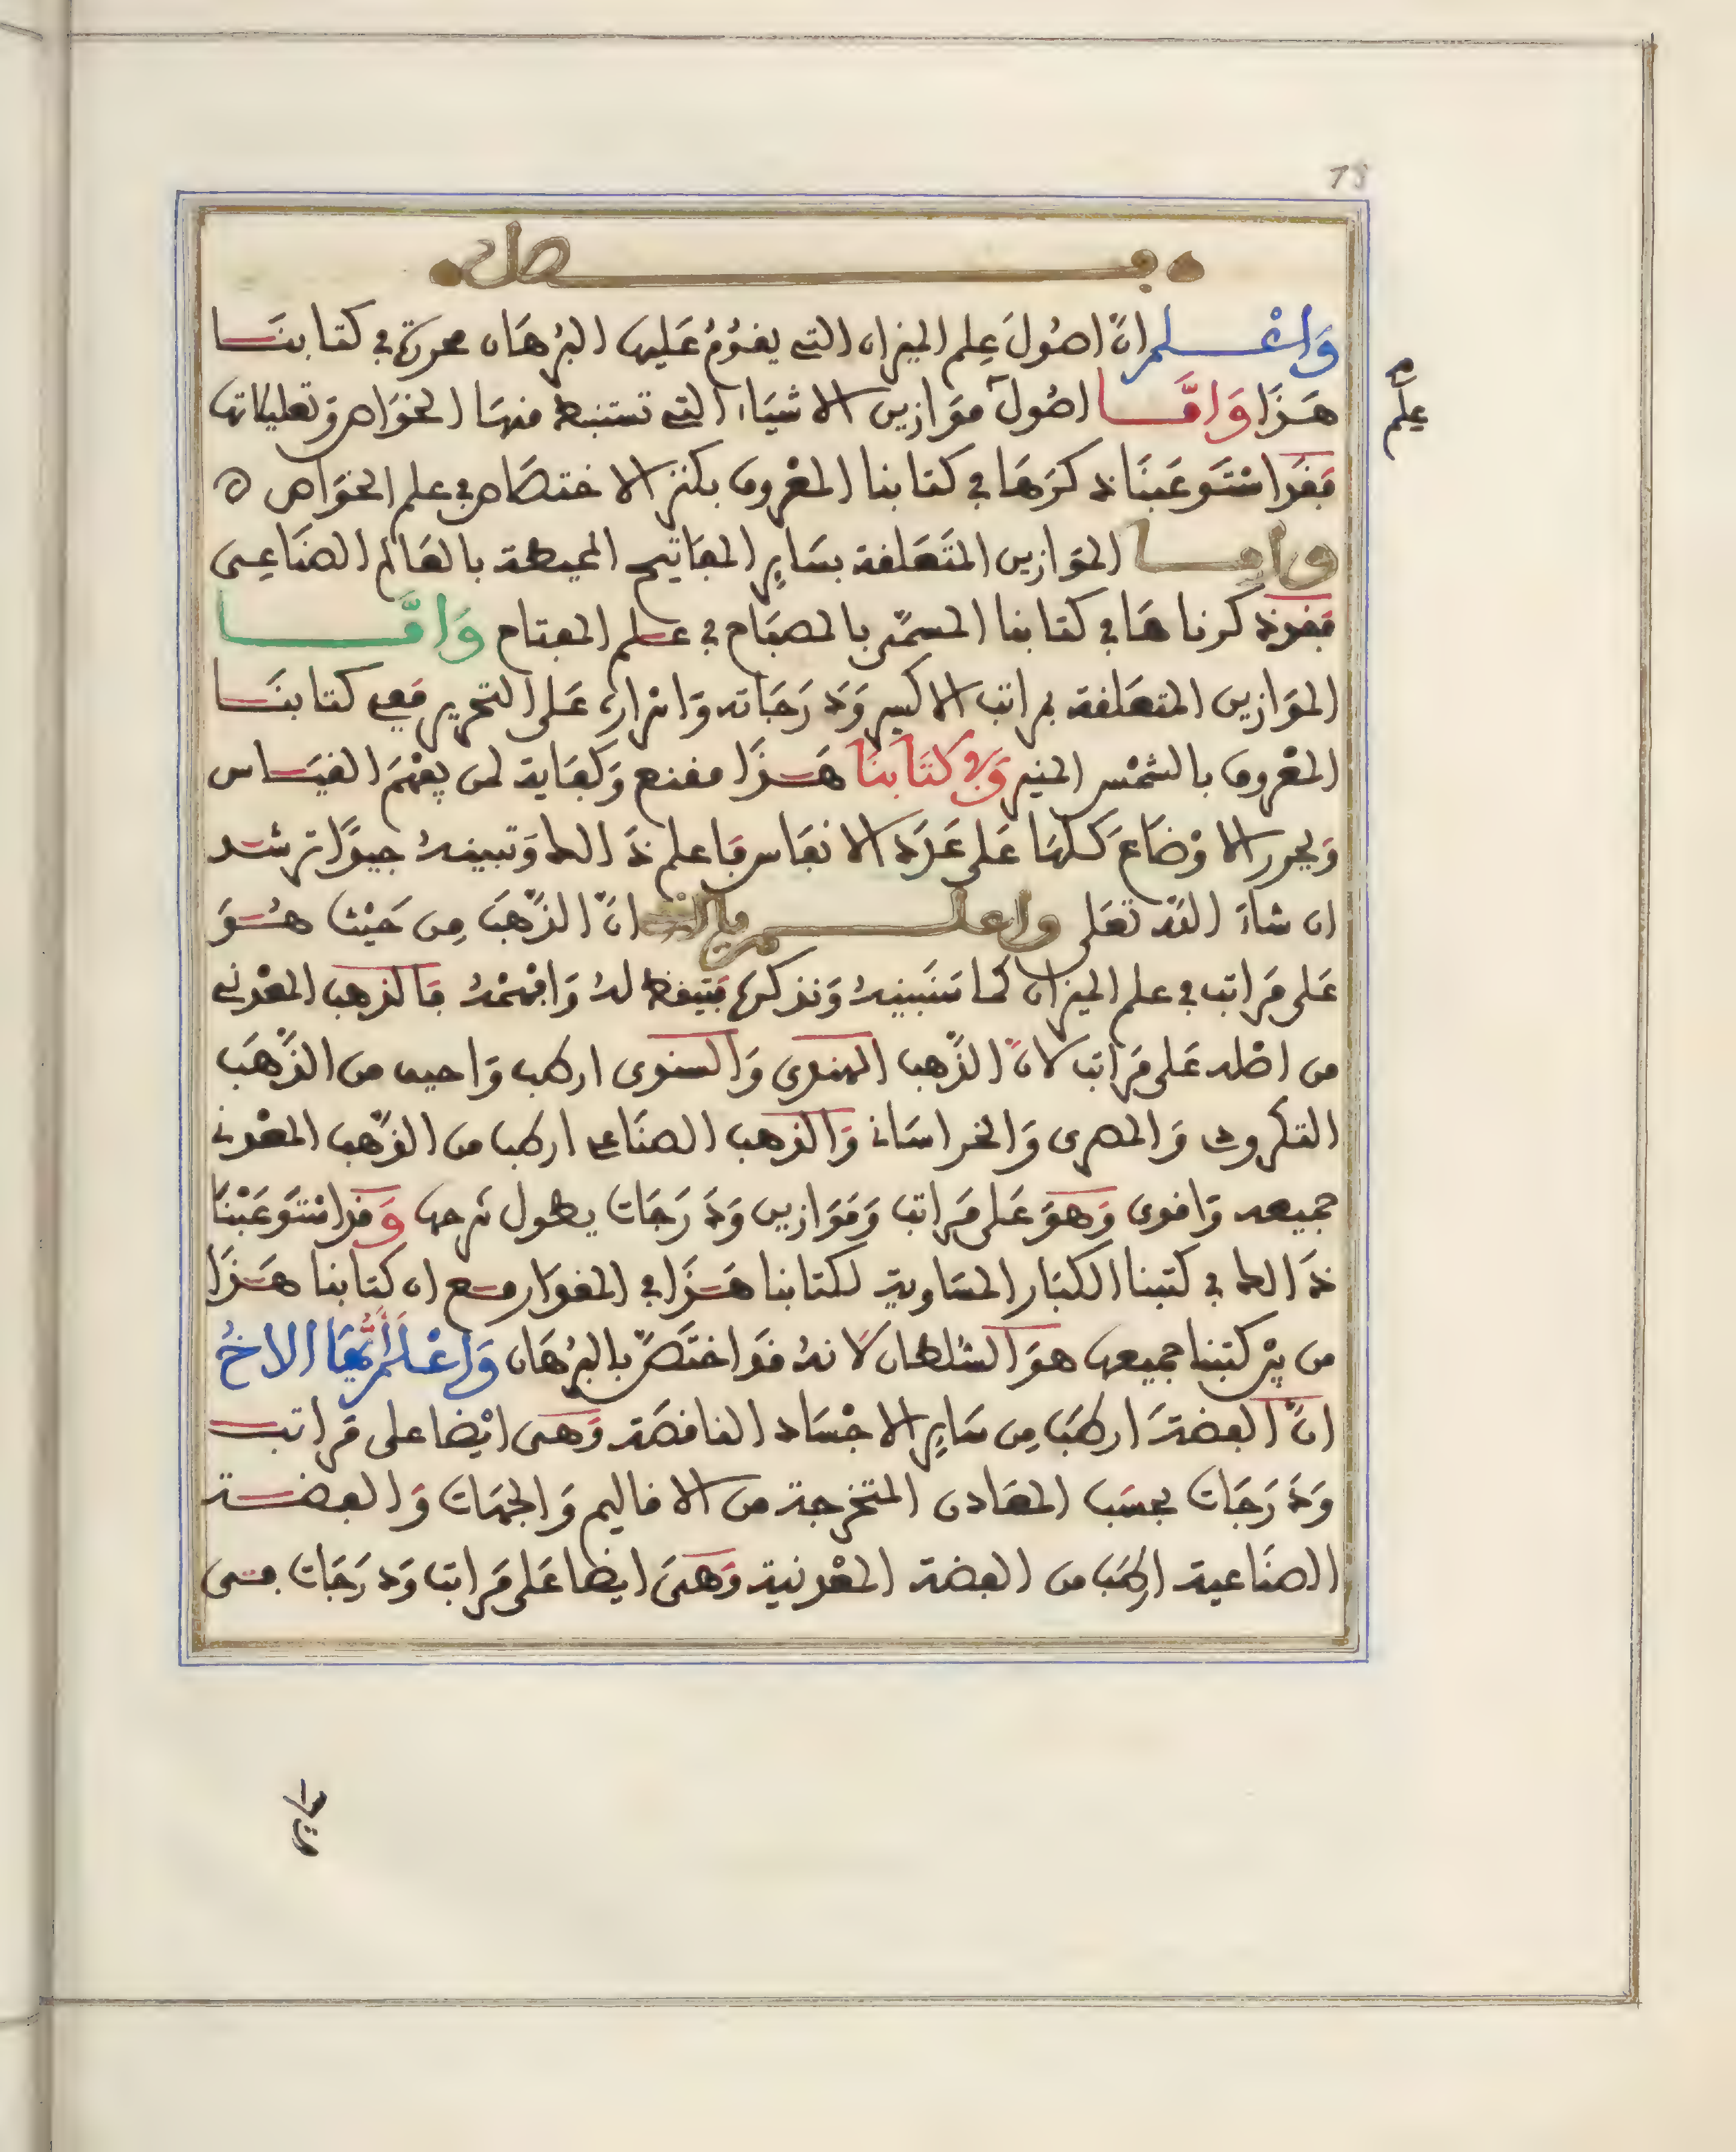 78
فصل
وَاعْلم انَّ اصُولَ عِلم الميزان التي يقُومُ عَليها البُرهَان محررة في كتابنَا
هَذَا وَامَّا اصُول مَوَازين الاشيَاء التي تستنبط منهَا الخوَاص وَتعليلاتها
فَقَد اسْتَوعَبنَا ذكرَهَا في كتابنا المعْروف بكنز الاختصَاص في علم الخوَاص ه
وامـا الموَازين المتَعَلقة بسَايِر المفَاتيح المحيطة بالعَالم الصنَاعِى
فقد ذكرناهَا في كتابنا المسمَّى بالمصبَاح في علم المفتاح وَامَّا
الموَازين المتعَلقة بمراتب الاكسير وَدَرَجَاته وَاسْرَاره عَلى التحرير فَفي كتابنَا
المعْروف بالشمْس المنير وَفي كتَابنَا هَذَا مقنع وَكفَاية لمن يفهَمَ القيَاس
وَيحرر الاوْضَاعَ كلهَا عَلى عَدَد الانفَاس فَاعلم ذَالك وَتبينهُ جيدًا ترشد
ان شاءَ اللهُ تعَلى واعلم يا اخي انَّ الذَّهبَ مِن حَيْث هُوَ
عَلى مَراتب في علم الميزان كما سَنَبينهُ وَنذكرها فَتيقظ لهُ وَافهمْهُ فَالذهب المعْدني
من اصْله عَلى مَراتب لانَّ الذَّهب الهندي وَالسنوى ارطب وَاحيى من الذَّهَب
التكرورى وَالمصرى وَالخراسَانى وَالذهب الصنَاعى ارطب من الذَّهب المعْدني
جميعه وَاقوى وَهوَ عَلى مَراتب وَمَوَازين وَدَرَجَات يطول شرحها وَقد اسْتَوعَبْنَا
ذَالك في كتبنا الكبَار المسَاوية لكتابنا هَذَا في المقدَار مع ان كتابنا هَذَا
من بيْن كتبنا جميعها هوَ السُلطان لانهُ قَد اختَصَّ بالبُرهَان وَاعْلَمْ أيُّهَا الاخُ
انَّ الفضةَ ارطبَ مِن سَايِر الاجْسَاد الناقصَة وَهى ايْضا على مَراتب
وَدَرَجَات بحسَب المعَادن المتخرجة من الاقاليم وَالجهَات وَالفضة
الصنَاعية ارطبَ من الفضة المعْدنية وَهىَ ايضا عَلى مَراتب وَدرَجَات فمنى
علم